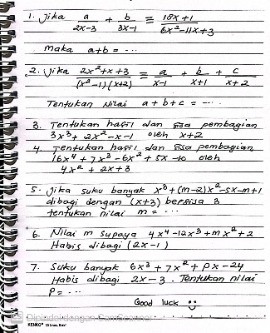 1. Jika a/(2x-3) + b/(3x-1) ≡ (18x+1)/(6x²-11x+3)
maka a+b = ...
2. Jika (2x²+x+3)/((x²-1)(x+2)) ≡ a/(x-1) + b/(x+1) + c/(x+2)
Tentukan nilai a+b+c = ...
3. Tentukan hasil dan sisa pembagian
3x³ + 2x² - x - 1 oleh x+2
4. Tentukan hasil dan sisa pembagian
16x⁴ + 7x³ - 6x² + 5x - 10 oleh
4x² + 2x + 3
5. Jika suku banyak x³ + (m-2)x² - 5x - m + 1
dibagi dengan (x+3) bersisa 3
tentukan nilai m = ...
6. Nilai m supaya 4x⁴ - 12x³ + mx² + 2
Habis dibagi (2x-1)
7. Suku banyak 6x³ + 7x² + Px - 24
Habis dibagi 2x-3. Tentukan nilai
P = ...
Good luck